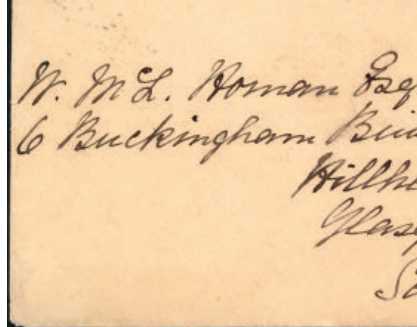 W. McL. Homan Esq
6 Buckingham Bui
Hillhe
Glasg
Sc